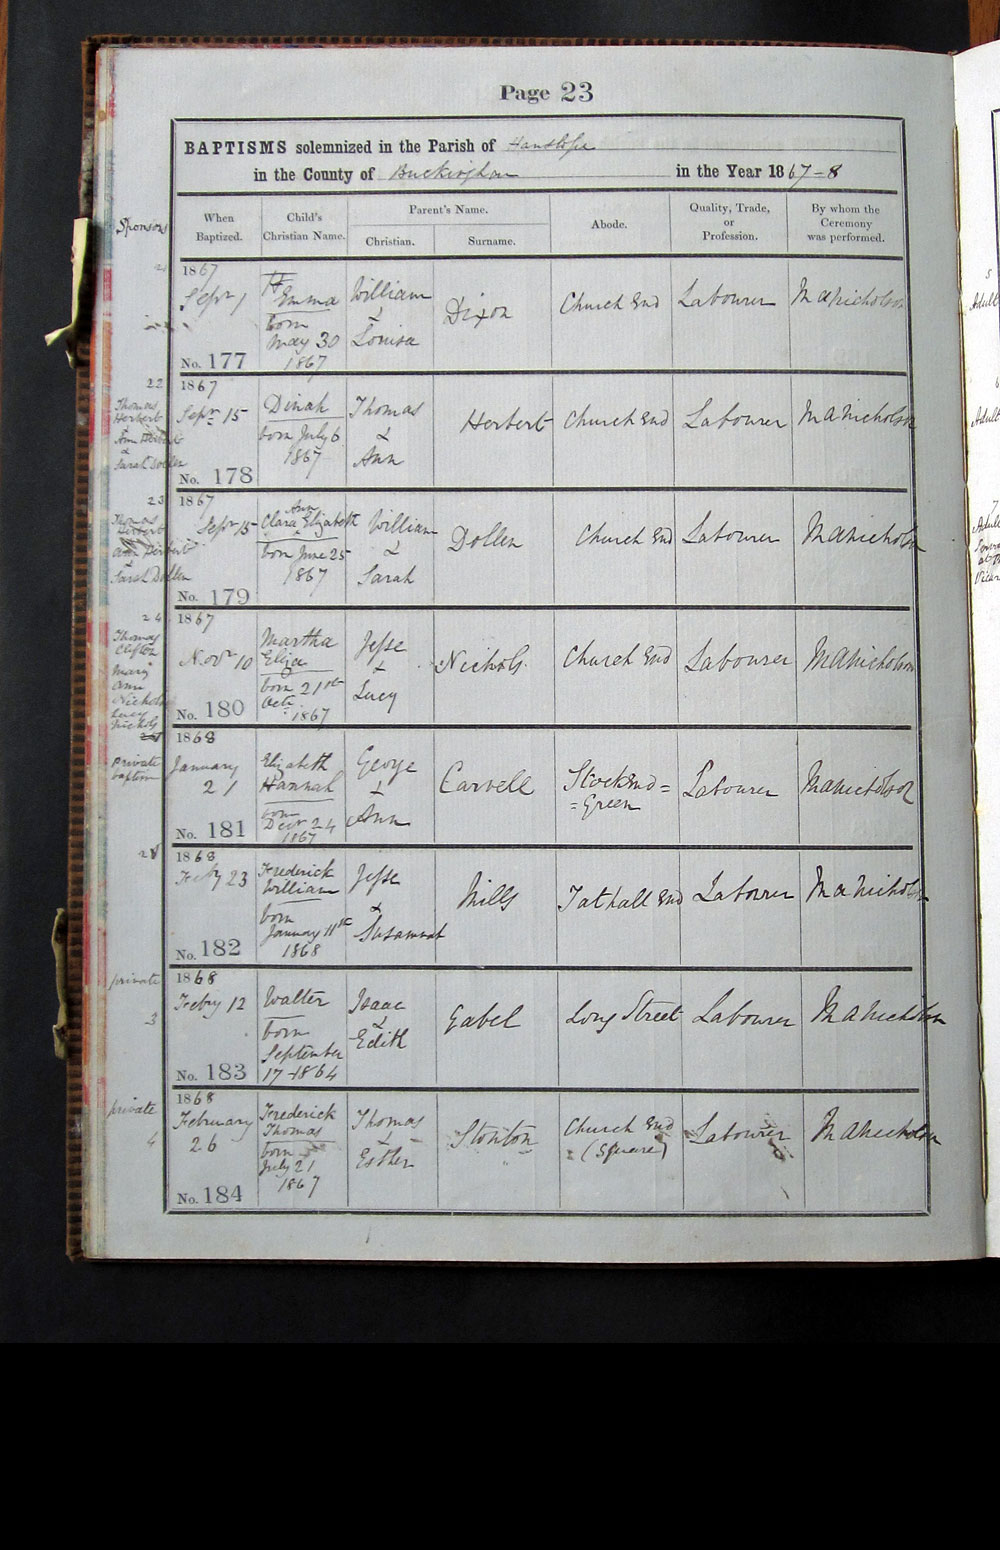 Page 23
BAPTISMS solemnized in the Parish of Hanslope
in the County of Buckingham in the Year 1867-8
Sponsors
When Baptized.
Child's Christian Name.
Parent's Name.
Christian.
Surname.
Abode.
Quality, Trade, or Profession.
By whom the Ceremony was performed.
21
1867
Sepr 1
No. 177
Emma
born
May 30
1867
William
&
Louisa
Dixon
Church End
Labourer
M A Nicholson
22
Thomas
Herbert
&
Ann Herbert
&
Sarah Dollen
1867
Sepr 15
No. 178
Dinah
born July 6
1867
Thomas
&
Ann
Herbert
Church End
Labourer
M A Nicholson
23
Thomas
Herbert
Ann Herbert
&
Sarah Dollen
1867
Sepr 15
No. 179
Ann
Clara Elizabeth
born June 25
1867
William
&
Sarah
Dollen
Church End
Labourer
M A Nicholson
24
Thomas
Clifton
Mary
Ann
Nichols
Lucy
Nichols
1867
Novr 10
No. 180
Martha
Eliza
born 21st
Octr
1867
Jesse
&
Lucy
Nichols
Church End
Labourer
M A Nicholson
Private
baptism
1868
January
21
No. 181
Elizabeth
Hannah
born
Decr 24
1867
George
&
Ann
Carvell
Stockend=
=Green
Labourer
M A Nicholson
1868
Feby 23
No. 182
Frederick
William
born
January 11th
1868
Jesse
&
Susannah
Mills
Tathall End
Labourer
M A Nicholson
private
3
1868
Febry 12
No. 183
Walter
born
September
17-1864
Isaac
&
Edith
Gabel
Long Street
Labourer
M A Nicholson
private
4
1868
February
26
No. 184
Frederick
Thomas
born
July 21
1867
Thomas
&
Esther
Stonton
Church End
(Square)
Labourer
M A Nicholson
Adult
Adult